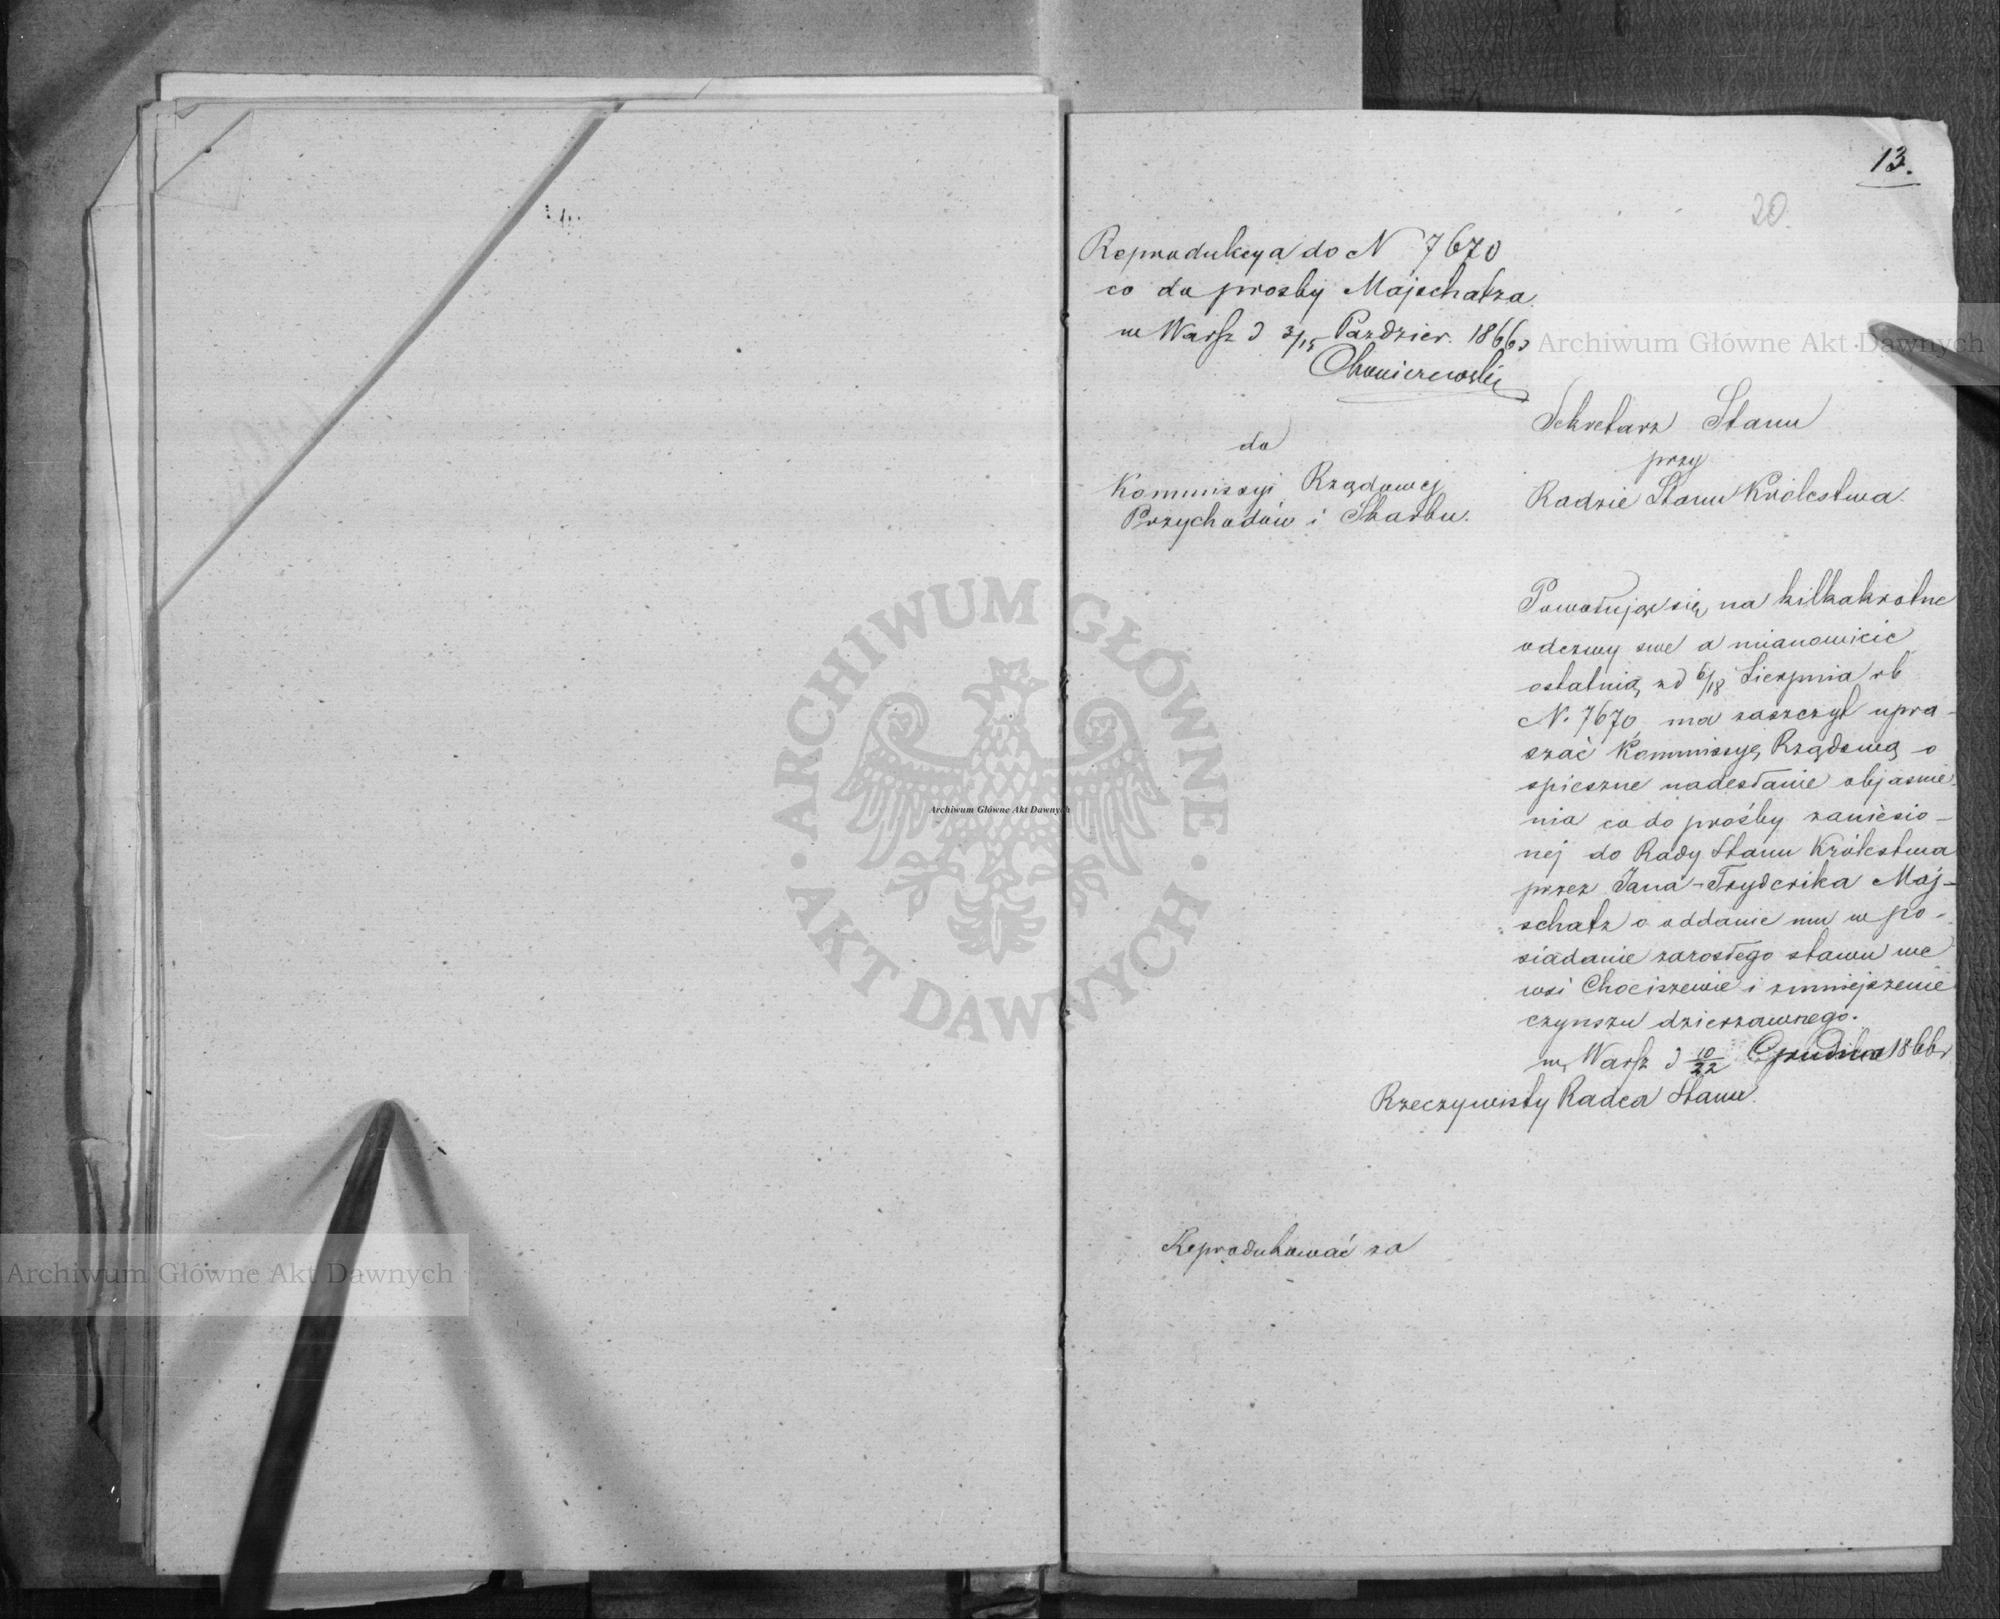 13.
20.
Reprodukcya do N 7670
co do prosby Majschatza
w Warsz d 3/15 Pazdzier. 1866 r
do
Kommissyi Rządowej
Przychodów i Skarbu.
Sekretarz Stanu
przy
Radzie Stanu Królestwa.
Powołując się, na kilkakrotne
odezwy swe a mianowicie
ostatnią zd 6/18 Sierpnia rb
N. 7670 ma zaszczyt upra-
szać Kommissyę Rządową o
spieszne nadesłanie objasnie-
nia co do prośby zaniesio-
nej do Rady Stanu Królestwa
przez Jana-Fryderika Maj-
schatz o oddanie mu w po-
siadanie zarosłego stawu we
wsi Chociszewie i zmniejszenie
czynszu dzierzawnego.
w Warsz d 10/22 Grudnia 1866 r
Rzeczywisty Radca Stanu.
Reprodukować za
Archiwum Główne Akt Dawnych
Archiwum Główne Akt Dawnych
Archiwum Główne Akt Dawnych
ARCHIWUM GŁÓWNE AKT DAWNYCH